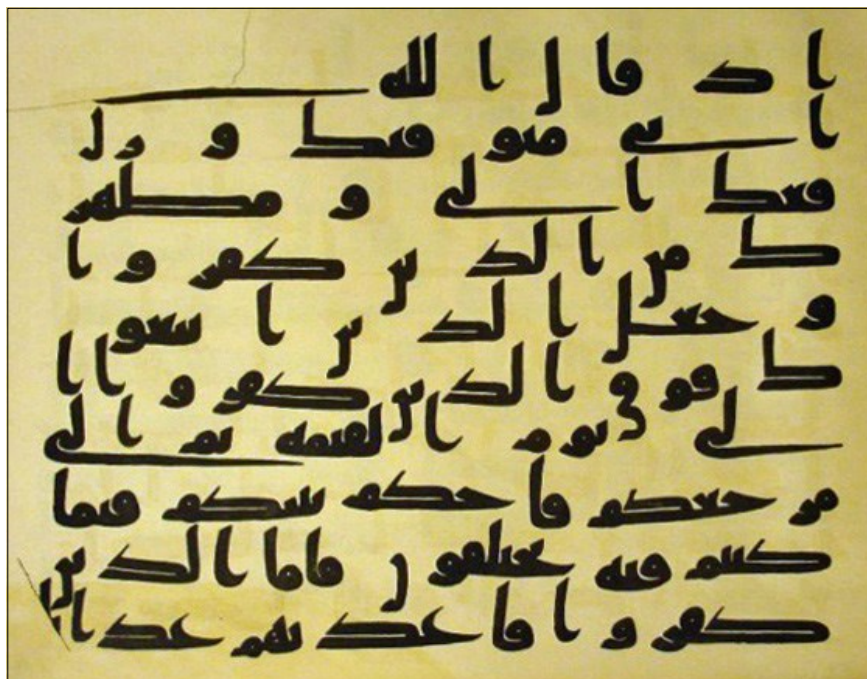 اذ قال الله
انى متوفيك ورا
فعك الى ومطهر
ك من الذين كفروا
وجعل الذين اتبعو
ك فوق الذين كفروا ا
لى يوم القيمه ثم الى
مرجعكم فاحكم بينكم فيما
كنتم فيه تختلفون فاما الذين
كفروا فاعذبهم عذابا